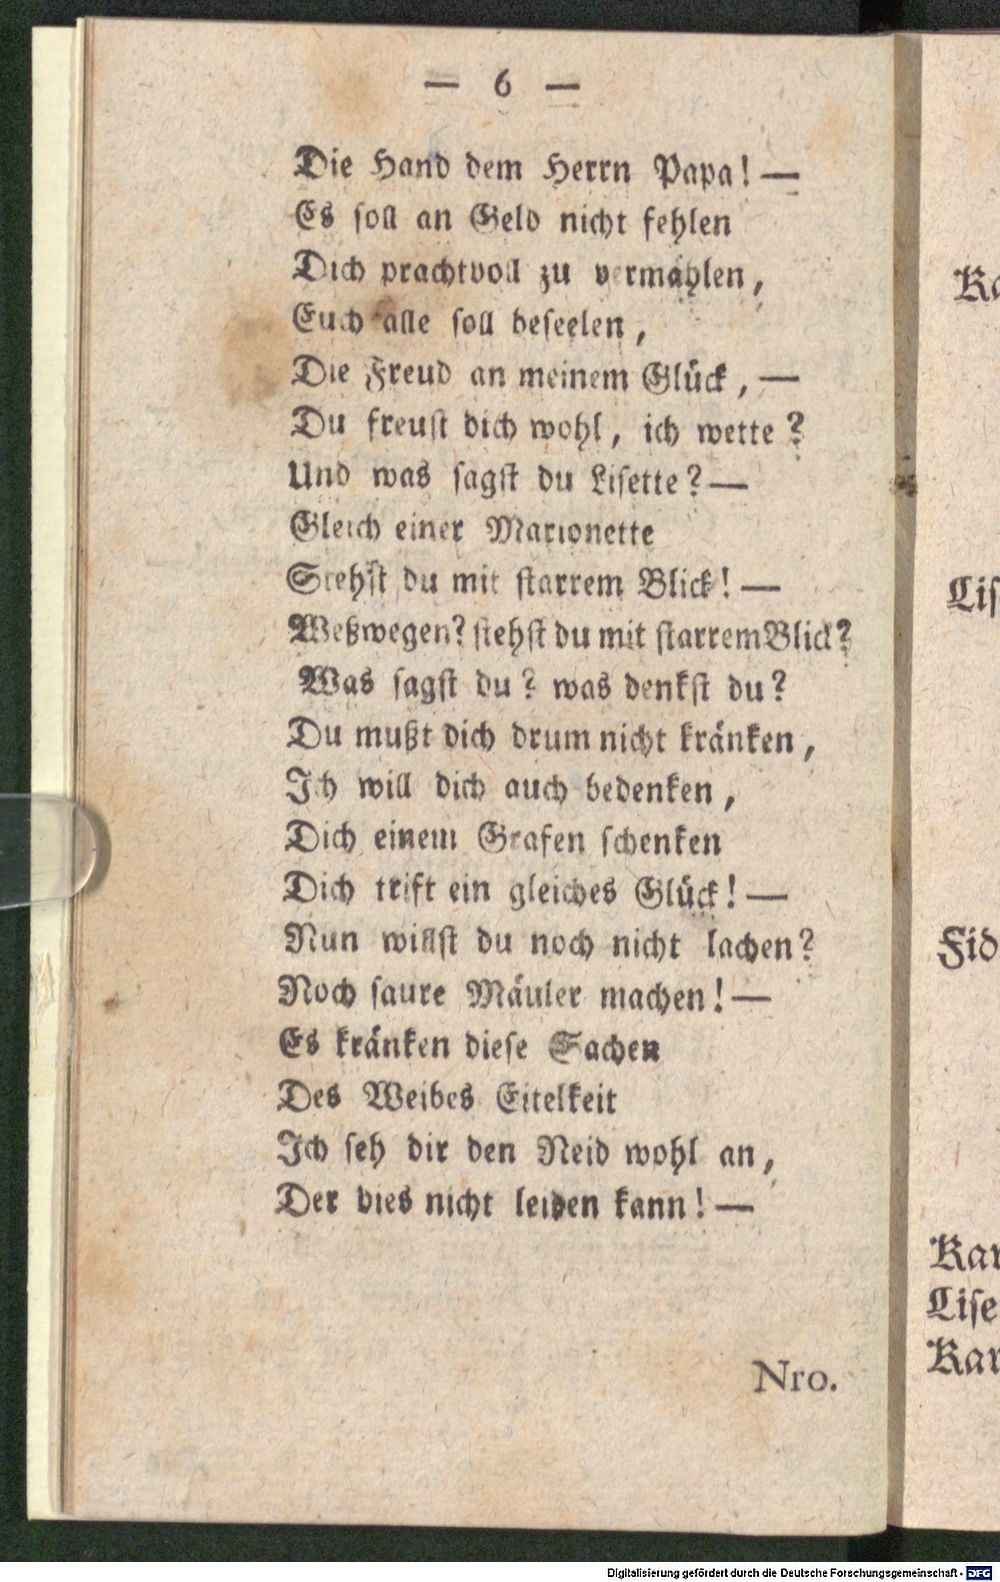 — 6 —
Die Hand dem Herrn Papa! —
Es soll an Geld nicht fehlen
Dich prachtvoll zu vermählen,
Euch alle soll beseelen,
Die Freud an meinem Glück, —
Du freust dich wohl, ich wette?
Und was sagst du Lisette? —
Gleich einer Marionette
Stehst du mit starrem Blick! —
Weßwegen? stehst du mit starrem Blick?
Was sagst du? was denkst du?
Du mußt dich drum nicht kränken,
Ich will dich auch bedenken,
Dich einem Grafen schenken
Dich trift ein gleiches Glück! —
Nun willst du noch nicht lachen?
Noch saure Mäuler machen! —
Es kränken diese Sachen
Des Weibes Eitelkeit
Ich seh dir den Neid wohl an,
Der dies nicht leiden kann! —
Nro.
Ka
Lis
Fid
Kar
Lise
Kar
Digitalisierung gefördert durch die Deutsche Forschungsgemeinschaft - DFG